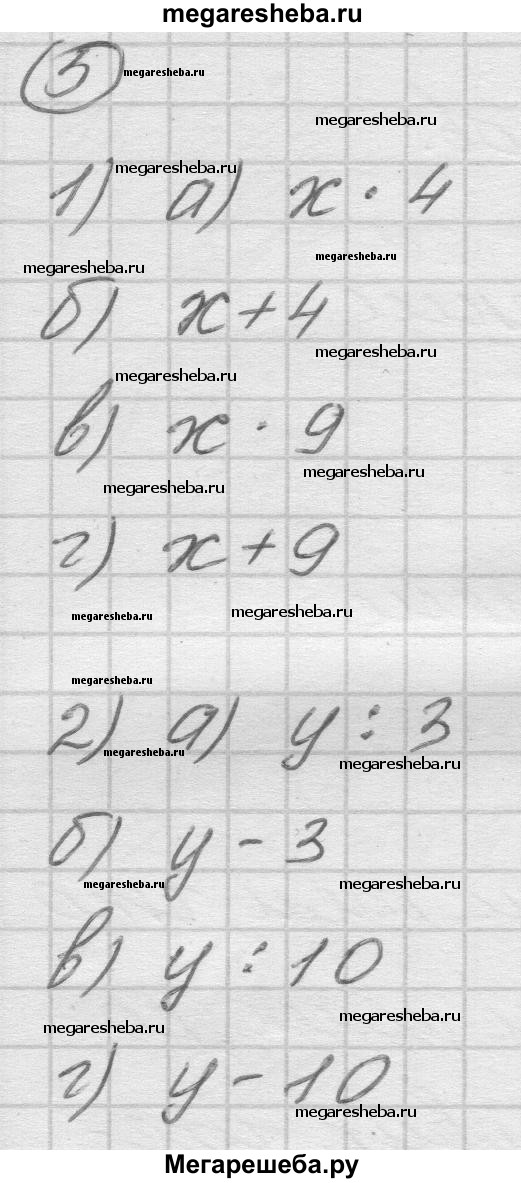 megaresheba.ru
5 megaresheba.ru
megaresheba.ru
megaresheba.ru
1) а) x · 4
megaresheba.ru
megaresheba.ru
б) x + 4
megaresheba.ru
megaresheba.ru
в) x · 9
megaresheba.ru
megaresheba.ru
г) x + 9
megaresheba.ru
megaresheba.ru
megaresheba.ru
2) а) y : 3
megaresheba.ru
megaresheba.ru
б) y - 3
megaresheba.ru
megaresheba.ru
в) y : 10
megaresheba.ru
megaresheba.ru
г) y - 10
megaresheba.ru
Мегарешеба.ру